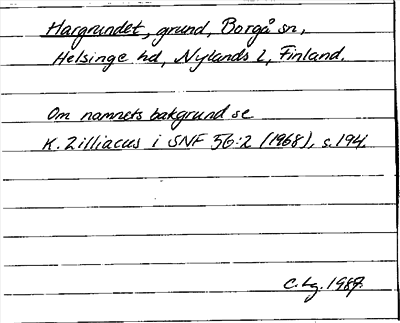 Hargrundet, grund, Borgå sn,
Helsinge hd, Nylands l, Finland.
Om namnets bakgrund se
K. Zilliacus i SNF 56:2 (1968), s. 194.
C. Lg. 1989.